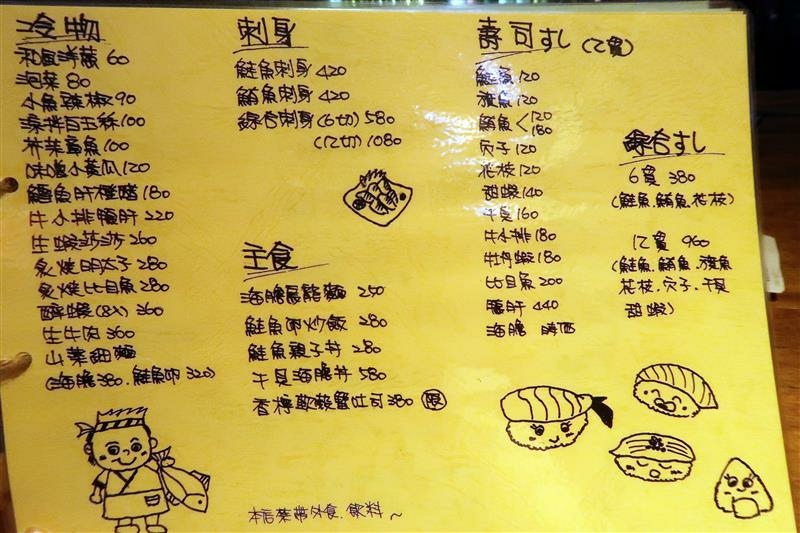 冷物
和風洋蔥 60
泡菜 80
小魚辣椒 90
涼拌百玉絲 100
芥茉章魚 100
味噌小黃瓜 120
鱈魚肝櫻醋 180
牛小排鵝肝 220
生蝦莎莎 260
炙燒明太子 280
炙燒比目魚 280
醉蝦(8入) 360
生牛肉 360
山藥細麵
(海膽380.鮭魚卵320)
刺身
鮭魚刺身 420
鮪魚刺身 420
綜合刺身(6切) 580
(12切) 1080
主食
海膽烏龍麵 250
鮭魚卵炒飯 280
鮭魚親子丼 280
干貝海膽丼 580
香檸軟殼蟹吐司 380 限
壽司すし(2貫)
鮭魚 120
旗魚 120
鮪魚<120
180
穴子 120
花枝 120
甜蝦 140
干貝 160
牛小排 180
牡丹蝦 180
比目魚 200
鵝肝 440
海膽 時價
綜合すし
6貫 380
(鮭魚.鮪魚.花枝)
12貫 960
(鮭魚.鮪魚.旗魚
花枝.穴子.干貝
甜蝦)
本店禁帶外食.飲料~